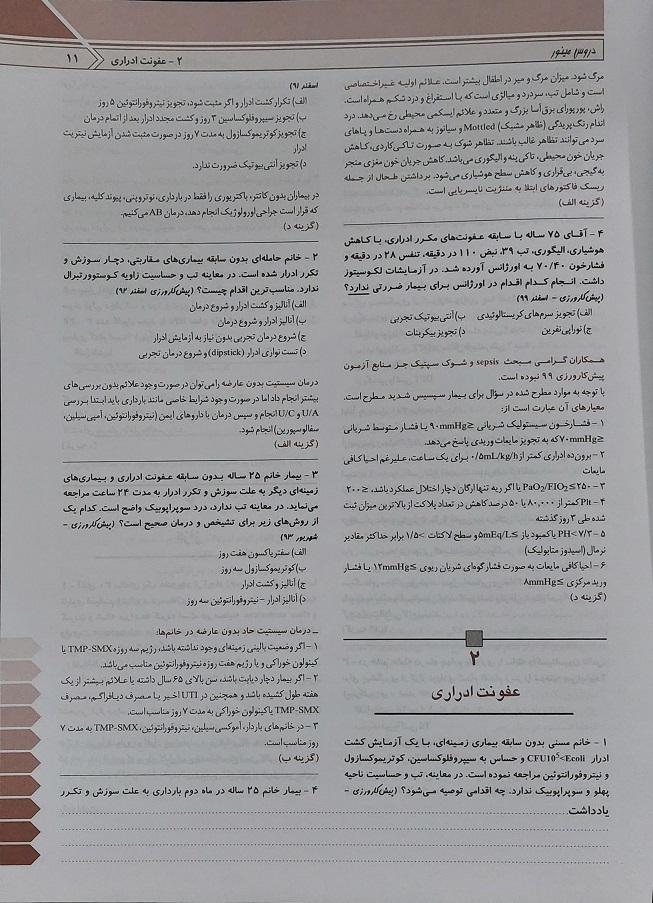 دروس مینور
۲ - عفونت ادراری
۱۱
مرگ شود. میزان مرگ و میر در اطفال بیشتر است. علائم اولیه غیراختصاصی
است و شامل تب، سردرد و میالژی است که با استفراغ و درد شکم همراه است.
راش، پورپورای برق‌آسا بزرگ و متعدد و علائم ایسکمی محیطی رخ می‌دهد. درد
اندام رنگ‌پریدگی (ظاهر مشبک) Mottled و سیانوز به همراه دست‌ها و پاهای
سرد می‌توانند تظاهر غالب باشند. تظاهر شوک به صورت تاکی‌کاردی، کاهش
جریان خون محیطی، تاکی‌پنه و الیگوری می‌باشد. کاهش جریان خون مغزی منجر
به گیجی، بی‌قراری و کاهش سطح هوشیاری می‌شود. برداشتن طحال از جمله
ریسک فاکتورهای ابتلا به مننژیت نایسریایی است.
(گزینه الف)
۴ - آقای ۷۵ ساله با سابقه عفونت‌های مکرر ادراری، با کاهش
هوشیاری، الیگوری، تب ۳۹، نبض ۱۱۰ در دقیقه، تنفس ۲۸ در دقیقه و
فشارخون ۷۰/۴۰ به اورژانس آورده شد. در آزمایشات لکوسیتوز
داشت. انجام کدام اقدام در اورژانس برای بیمار ضررتی ندارد؟
(پیش‌کارورزی - اسفند ۹۹)
الف) تجویز سرم‌های کریستالوئیدی ب) آنتی‌بیوتیک تجربی
ج) نوراپی‌نفرین د) تجویز بیکربنات
همکاران گرامی مبحث sepsis و شوک سپتیک جز منابع آزمون
پیش‌کارورزی ۹۹ نبوده است.
با توجه به موارد مطرح شده در سؤال برای بیمار سپسیس شدید مطرح است.
معیارهای آن عبارت است از:
۱ - فشارخون سیستولیک شریانی ≤۹۰mmHg یا فشار متوسط شریانی
≤۷۰mmHg که به تجویز مایعات وریدی پاسخ می‌دهد.
۲ - برون‌ده ادراری کمتر از ۰/۵mL/kg/h برای یک ساعت، علیرغم احیا کافی
مایعات
۳ - PaO2/FIO2≤۲۵۰ یا اگر ریه تنها ارگان دچار اختلال عملکرد باشد، ≤۲۰۰
۴ - Plt کمتر از ۸۰,۰۰۰ یا ۵۰ درصد کاهش در تعداد پلاکت از بالاترین میزان ثبت
شده طی ۳ روز گذشته
۵ - PH<۷/۳ یا کمبود باز ≥۵mEq/L و سطح لاکتات >۱/۵ برابر حداکثر مقادیر
نرمال (اسیدوز متابولیک)
۶ - احیا کافی مایعات به صورت فشار گوه‌ای شریان ریوی ≥۱۲mmHg یا فشار
ورید مرکزی ≥۸mmHg
(گزینه د)
۲
عفونت ادراری
۱ - خانم مسنی بدون سابقه بیماری زمینه‌ای، با یک آزمایش کشت
ادرار CFU10⁵<Ecoli و حساس به سیپروفلوکساسین، کوتریموکسازول
و نیتروفورانتوئین مراجعه نموده است. در معاینه، تب و حساسیت ناحیه
پهلو و سوپراپوبیک ندارد. چه اقدامی توصیه می‌شود؟ (پیش‌کارورزی -
اسفند ۹۱)
الف) تکرار کشت ادرار و اگر مثبت شود، تجویز نیتروفورانتوئین ۵ روز
ب) تجویز سیپروفلوکساسین ۳ روز و کشت مجدد ادرار بعد از اتمام درمان
ج) تجویز کوتریموکسازول به مدت ۷ روز در صورت مثبت شدن آزمایش نیتریت
ادرار
د) تجویز آنتی‌بیوتیک ضرورت ندارد.
در بیماران بدون کاتتر، باکتریوری را فقط در بارداری، نوتروپنی، پیوند کلیه، بیماری
که قرار است جراحی اورولوژیک انجام دهد، درمان AB می‌کنیم.
(گزینه د)
۲ - خانم حامله‌ای بدون سابقه بیماری‌های مقاربتی، دچار سوزش و
تکرر ادرار شده است. در معاینه تب و حساسیت زاویه کوستوورتبرال
ندارد. مناسب‌ترین اقدام چیست؟ (پیش‌کارورزی اسفند ۹۲)
الف) آنالیز و کشت ادرار و شروع درمان
ب) آنالیز ادرار و شروع درمان
ج) شروع درمان تجربی بدون نیاز به آزمایش ادرار
د) تست نواری ادرار (dipstick) و شروع درمان تجربی
درمان سیستیت بدون عارضه را می‌توان در صورت وجود علائم بدون بررسی‌های
بیشتر انجام داد اما در صورت وجود شرایط خاصی مانند بارداری باید ابتدا بررسی
U/A و U/C انجام و سپس درمان با داروهای ایمن (نیتروفورانتوئین، آمپی‌سیلین،
سفالوسپورین) انجام شود.
(گزینه الف)
۳ - بیمار خانم ۲۵ ساله بدون سابقه عفونت ادراری و بیماری‌های
زمینه‌ای دیگر به علت سوزش و تکرر ادرار به مدت ۲۴ ساعت مراجعه
می‌نماید. در معاینه تب ندارد، درد سوپراپوبیک واضح است. کدام یک
از روش‌های زیر برای تشخیص و درمان صحیح است؟ (پیش‌کارورزی -
شهریور ۹۳)
الف) سفتریاکسون هفت روز
ب) کوتریموکسازول سه روز
ج) آنالیز و کشت ادرار
د) آنالیز ادرار - نیتروفورانتوئین سه روز
ـ درمان سیستیت حاد بدون عارضه در خانم‌ها:
۱ - اگر وضعیت بالینی زمینه‌ای وجود نداشته باشد، رژیم سه روزه TMP-SMX یا
کینولون خوراکی و یا رژیم هفت روزه نیتروفورانتوئین مناسب می‌باشد.
۲ - اگر بیمار دچار دیابت باشد، سن بالای ۶۵ سال داشته یا علائم بیشتر از یک
هفته طول کشیده باشد و همچنین در UTI اخیر یا مصرف دیافراگم، مصرف
TMP-SMX یا کینولون خوراکی به مدت ۷ روز مناسب است.
۳ - در خانم‌های باردار، آموکسی سیلین، نیتروفورانتوئین، TMP-SMX به مدت ۷
روز مناسب است.
(گزینه ب)
۴ - بیمار خانم ۲۵ ساله در ماه دوم بارداری به علت سوزش و تکرر
یادداشت